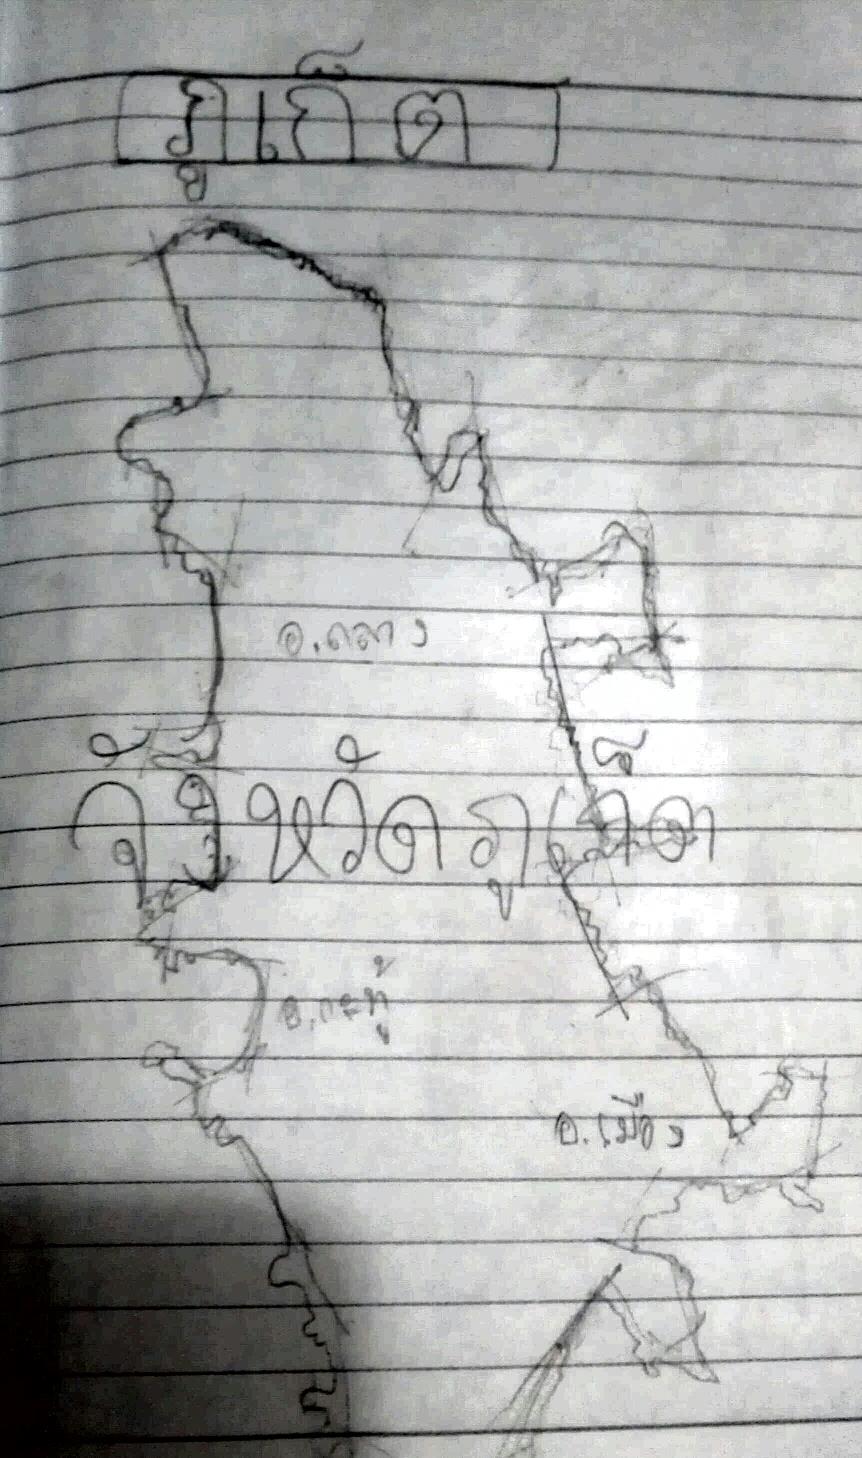 ภูเก็ต
อ.ถลาง
จังหวัดภูเก็ต
อ.กะทู้
อ.เมือง